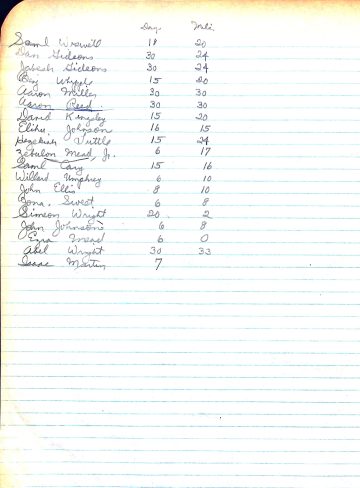 Days Mile
Saml Wrowell 18 20
Dan Gideons 30 24
Jabesh Gideons 30 24
Benj Whipple 15 20
Aaron Miller 30 30
Aaron Reed 30 30
David Kingsley 15 20
Elihu Johnson 16 15
Hezekiah Tuttle 15 24
Zebulon Mead, Jr. 6 17
Saml Cary 15 16
Willard Umphrey 6 10
John Ellis 8 10
Jona. Sweet 6 8
Simeon Wright 20 2
John Johnson 6 8
Ezra Mead 6 0
Abel Wright 30 33
Isaac Martin 7